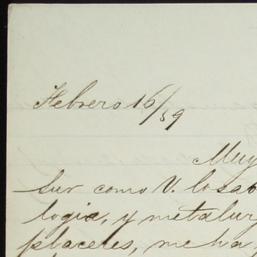 Febrero 16/59
Muy
Sur como V. lo sab
logia, y metalur
placeres, me ha